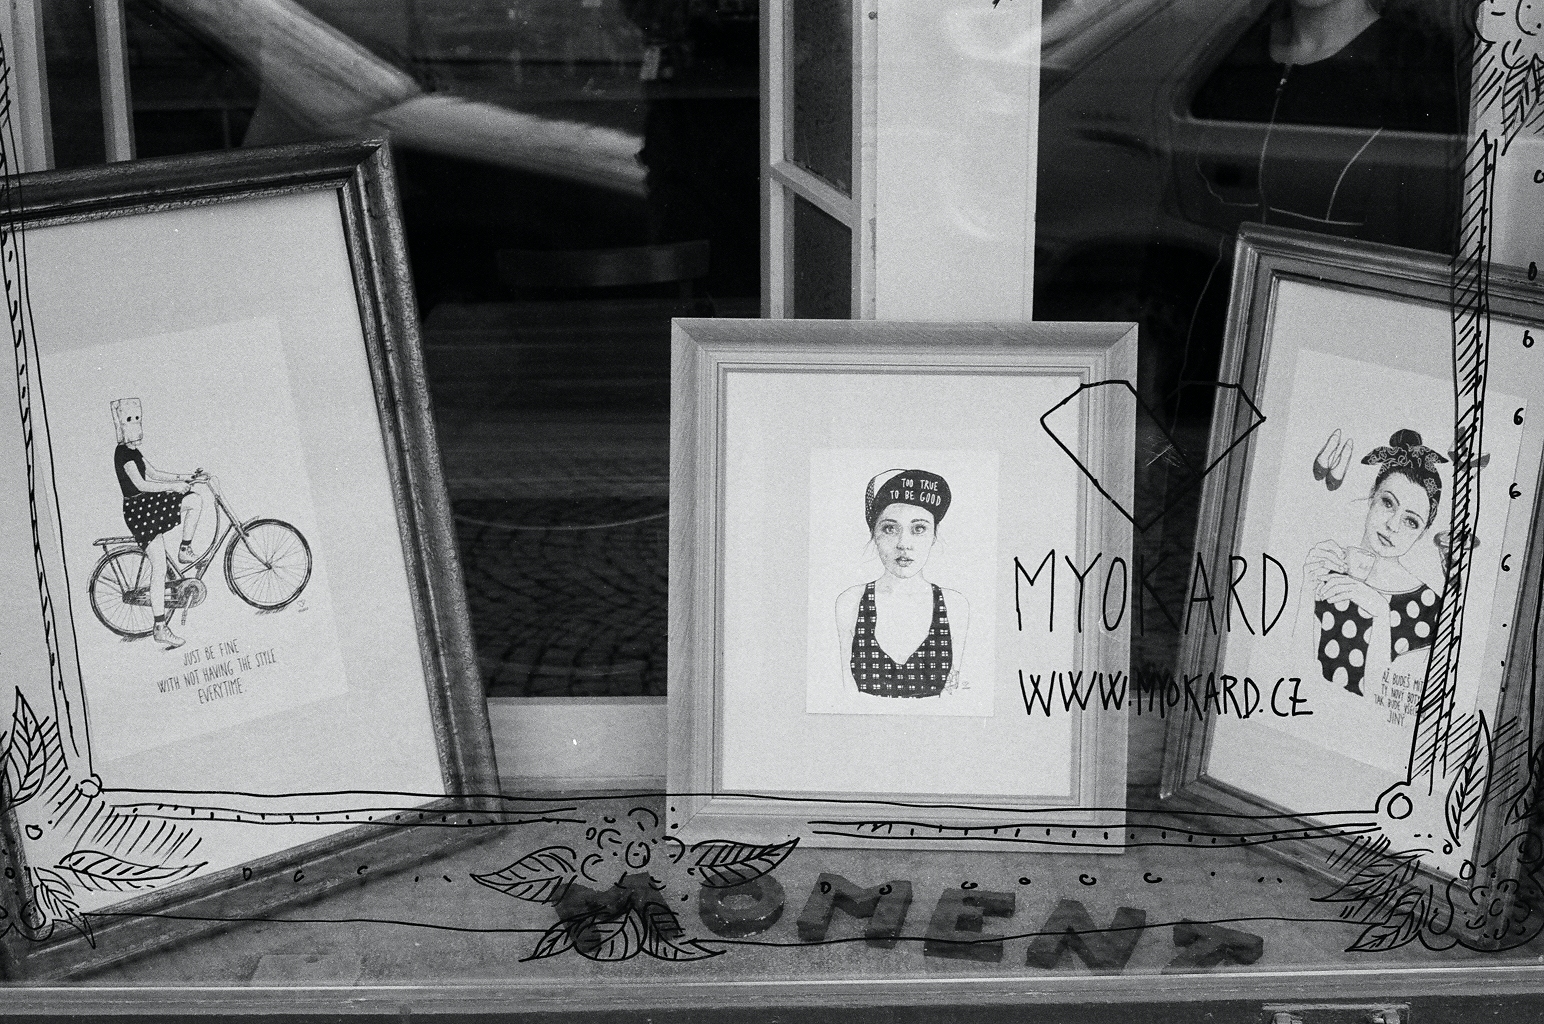 JUST BE FINE
WITH NOT HAVING THE STYLE
EVERYTIME
TOO TRUE
TO BE GOOD
MYOKARD
WWW.MYOKARD.CZ
AŽ BUDEŠ MÍT
TY NOVÉ BOTY
TAK BUDE
JINÝ